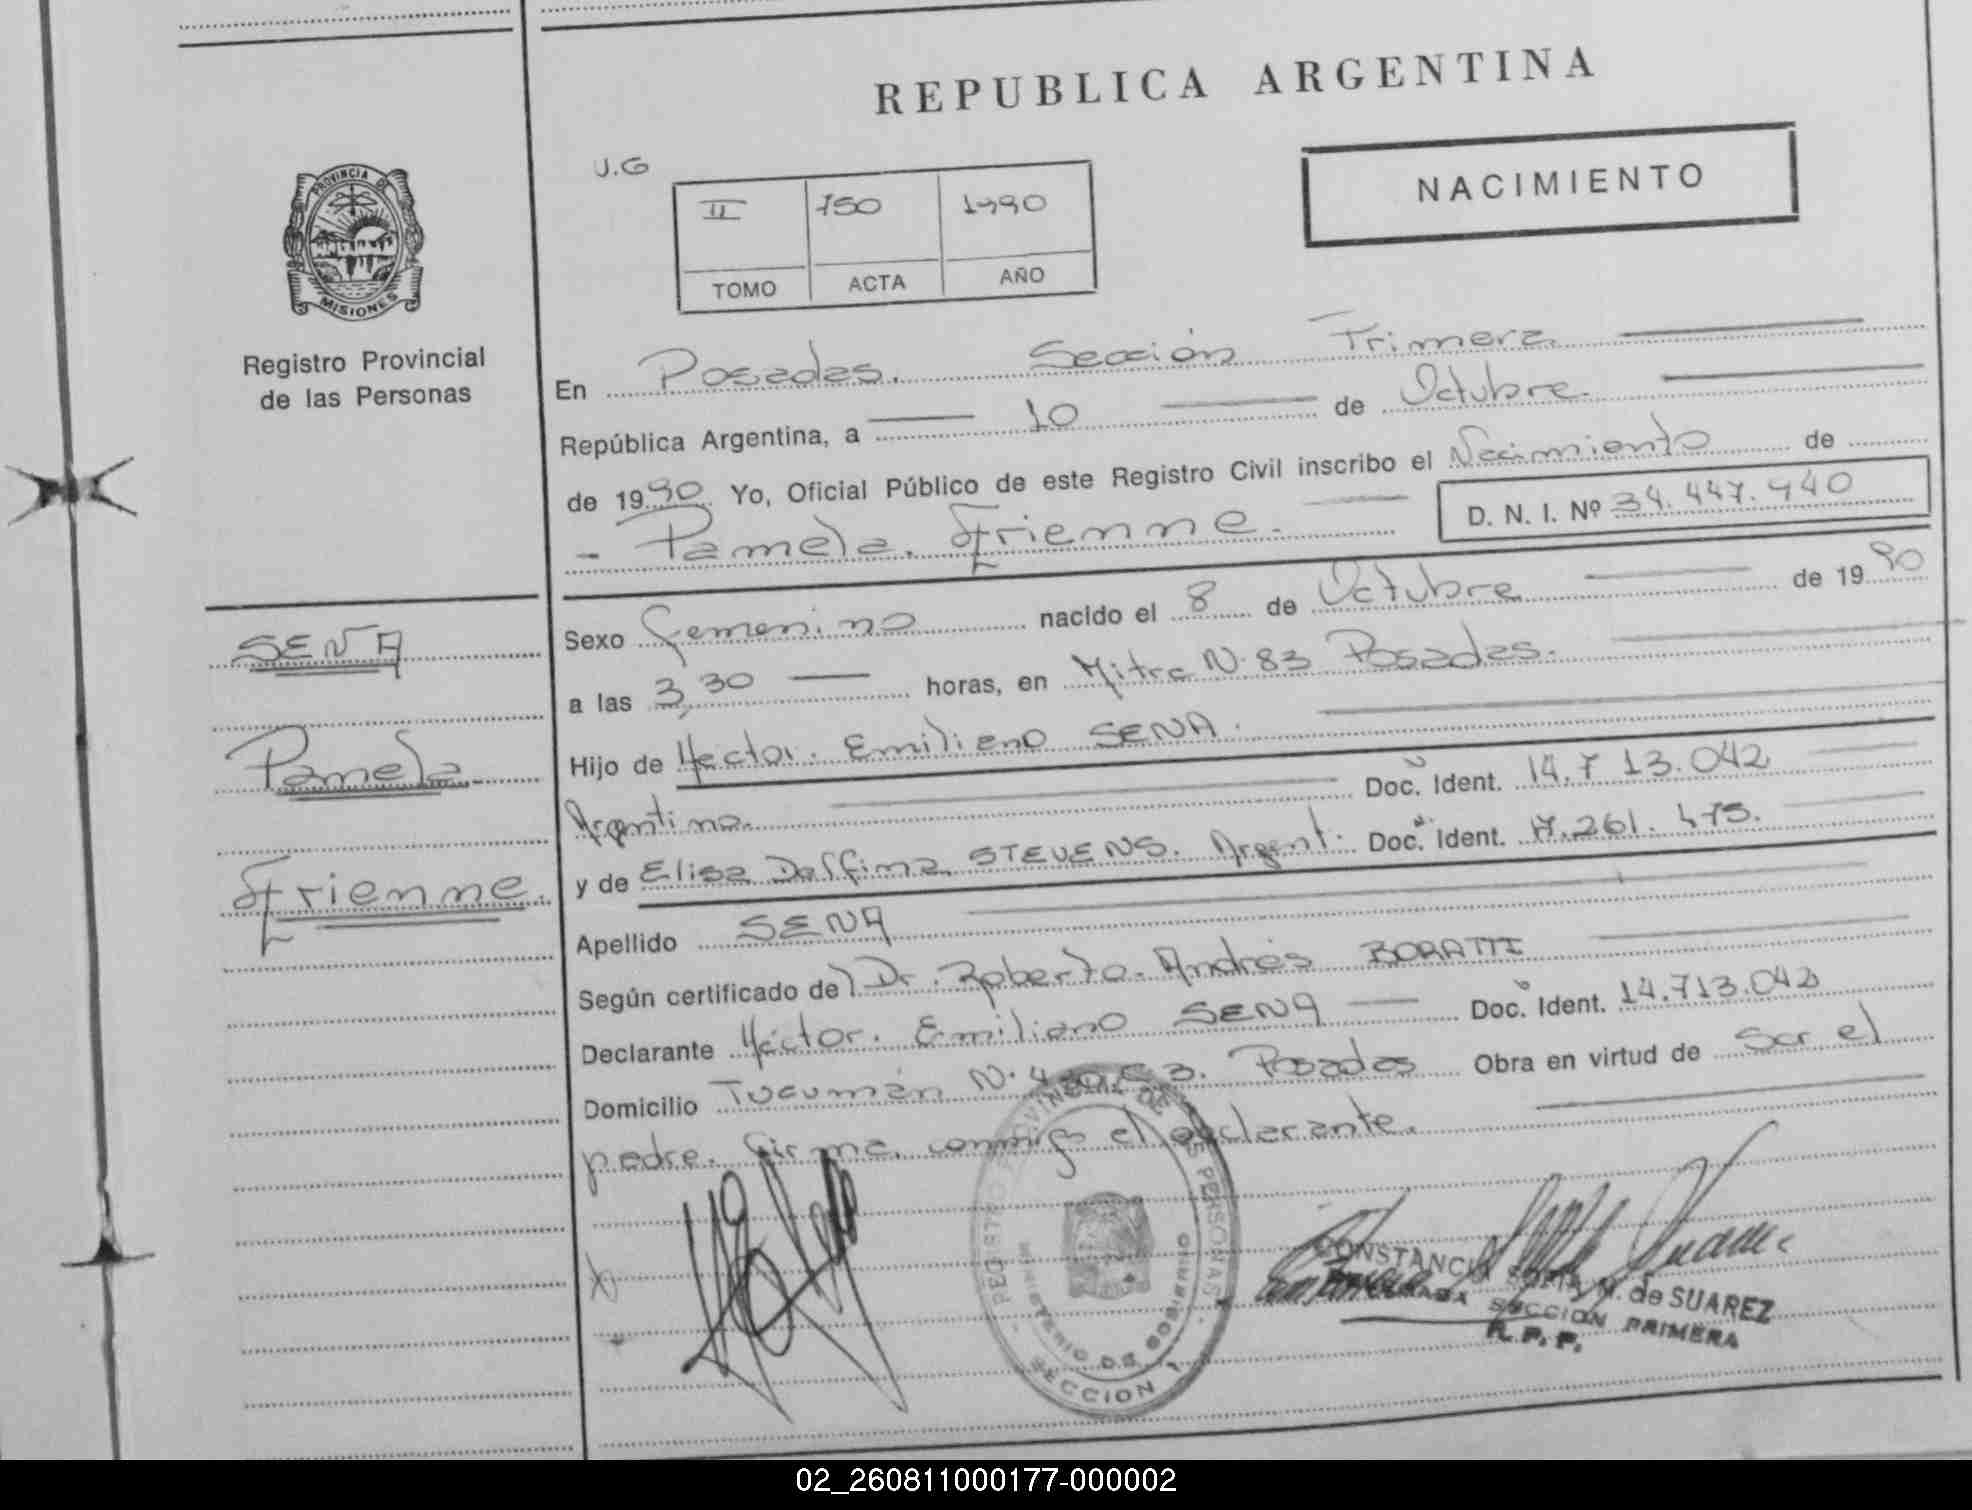 REPUBLICA ARGENTINA
NACIMIENTO
U.G
II 150 1990
TOMO ACTA AÑO
PROVINCIA DE
MISIONES
Registro Provincial
de las Personas
En Posadas. Sección Primera
República Argentina, a 10 de Octubre.
de 1990. Yo, Oficial Público de este Registro Civil inscribo el Nacimiento de
- Pamela.
D. N. I. Nº 34.447.940
SENA
Pamela.
Sexo Femenino nacido el 8 de Octubre de 1990
a las 3,30 horas, en Mitre N. 83 Posadas.
Hijo de Hector. Emiliano SENA.
Argentino. Doc. Ident. 14.713.042
y de Elisa Delfina STEVENS. Argent. Doc. Ident. 17.261.475.
Apellido SENA
Según certificado del Dr. Roberto. Andrés BORATTI
Declarante Héctor. Emiliano SENA Doc. Ident. 14.713.042
Domicilio Tucumán N. Posadas Obra en virtud de Ser el
padre. Firma conmigo el declarante.
REGISTRO PROVINCIAL DE LAS PERSONAS
MINISTERIO DE GOBIERNO
SECCION 1
CONSTANCIA SOFIA M. de SUAREZ
SECCION PRIMERA
R. P. P.
02_260811000177-000002